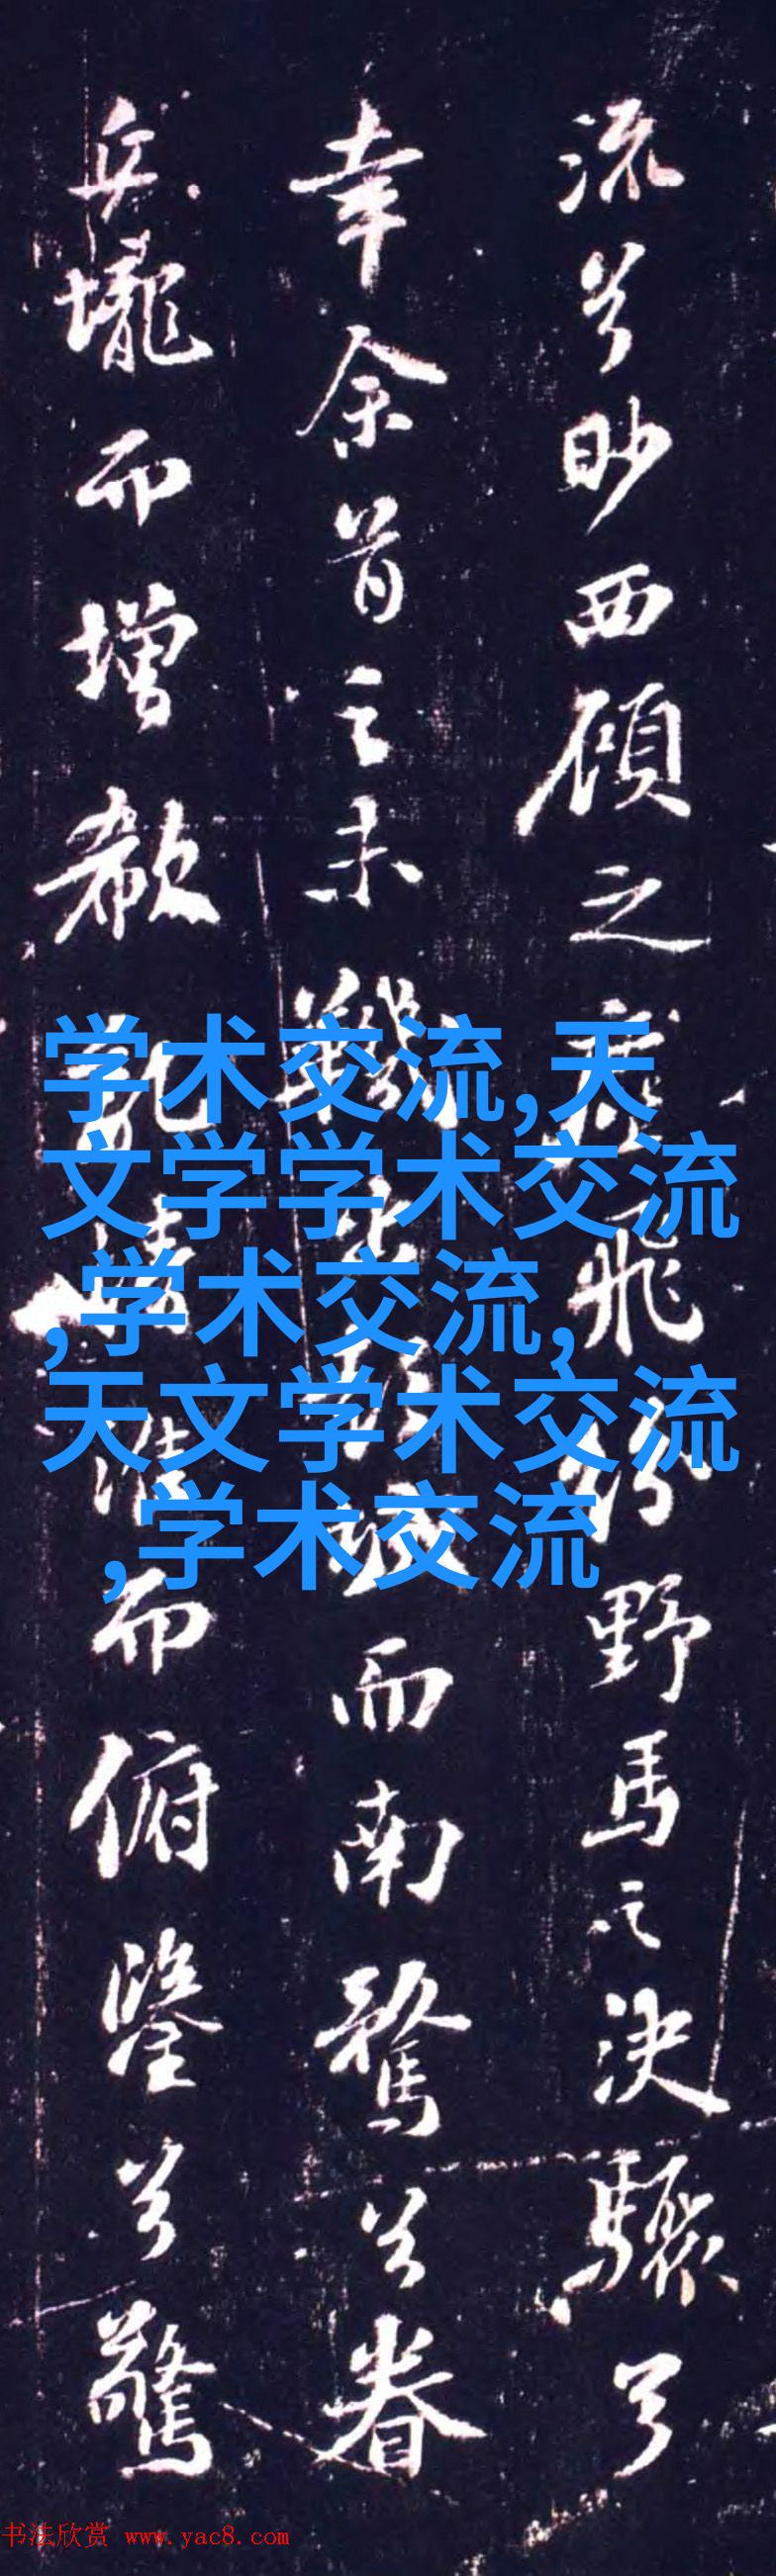 流兮眇西顧之
飛
野馬之決驟兮
幸余首之未
而南騖兮眷
丘壠而增欷
而俯鑒兮驚
学术交流,天
文学学术交流
,学术交流,
天文学术交流
,学术交流
书法欣赏 www.yac8.com